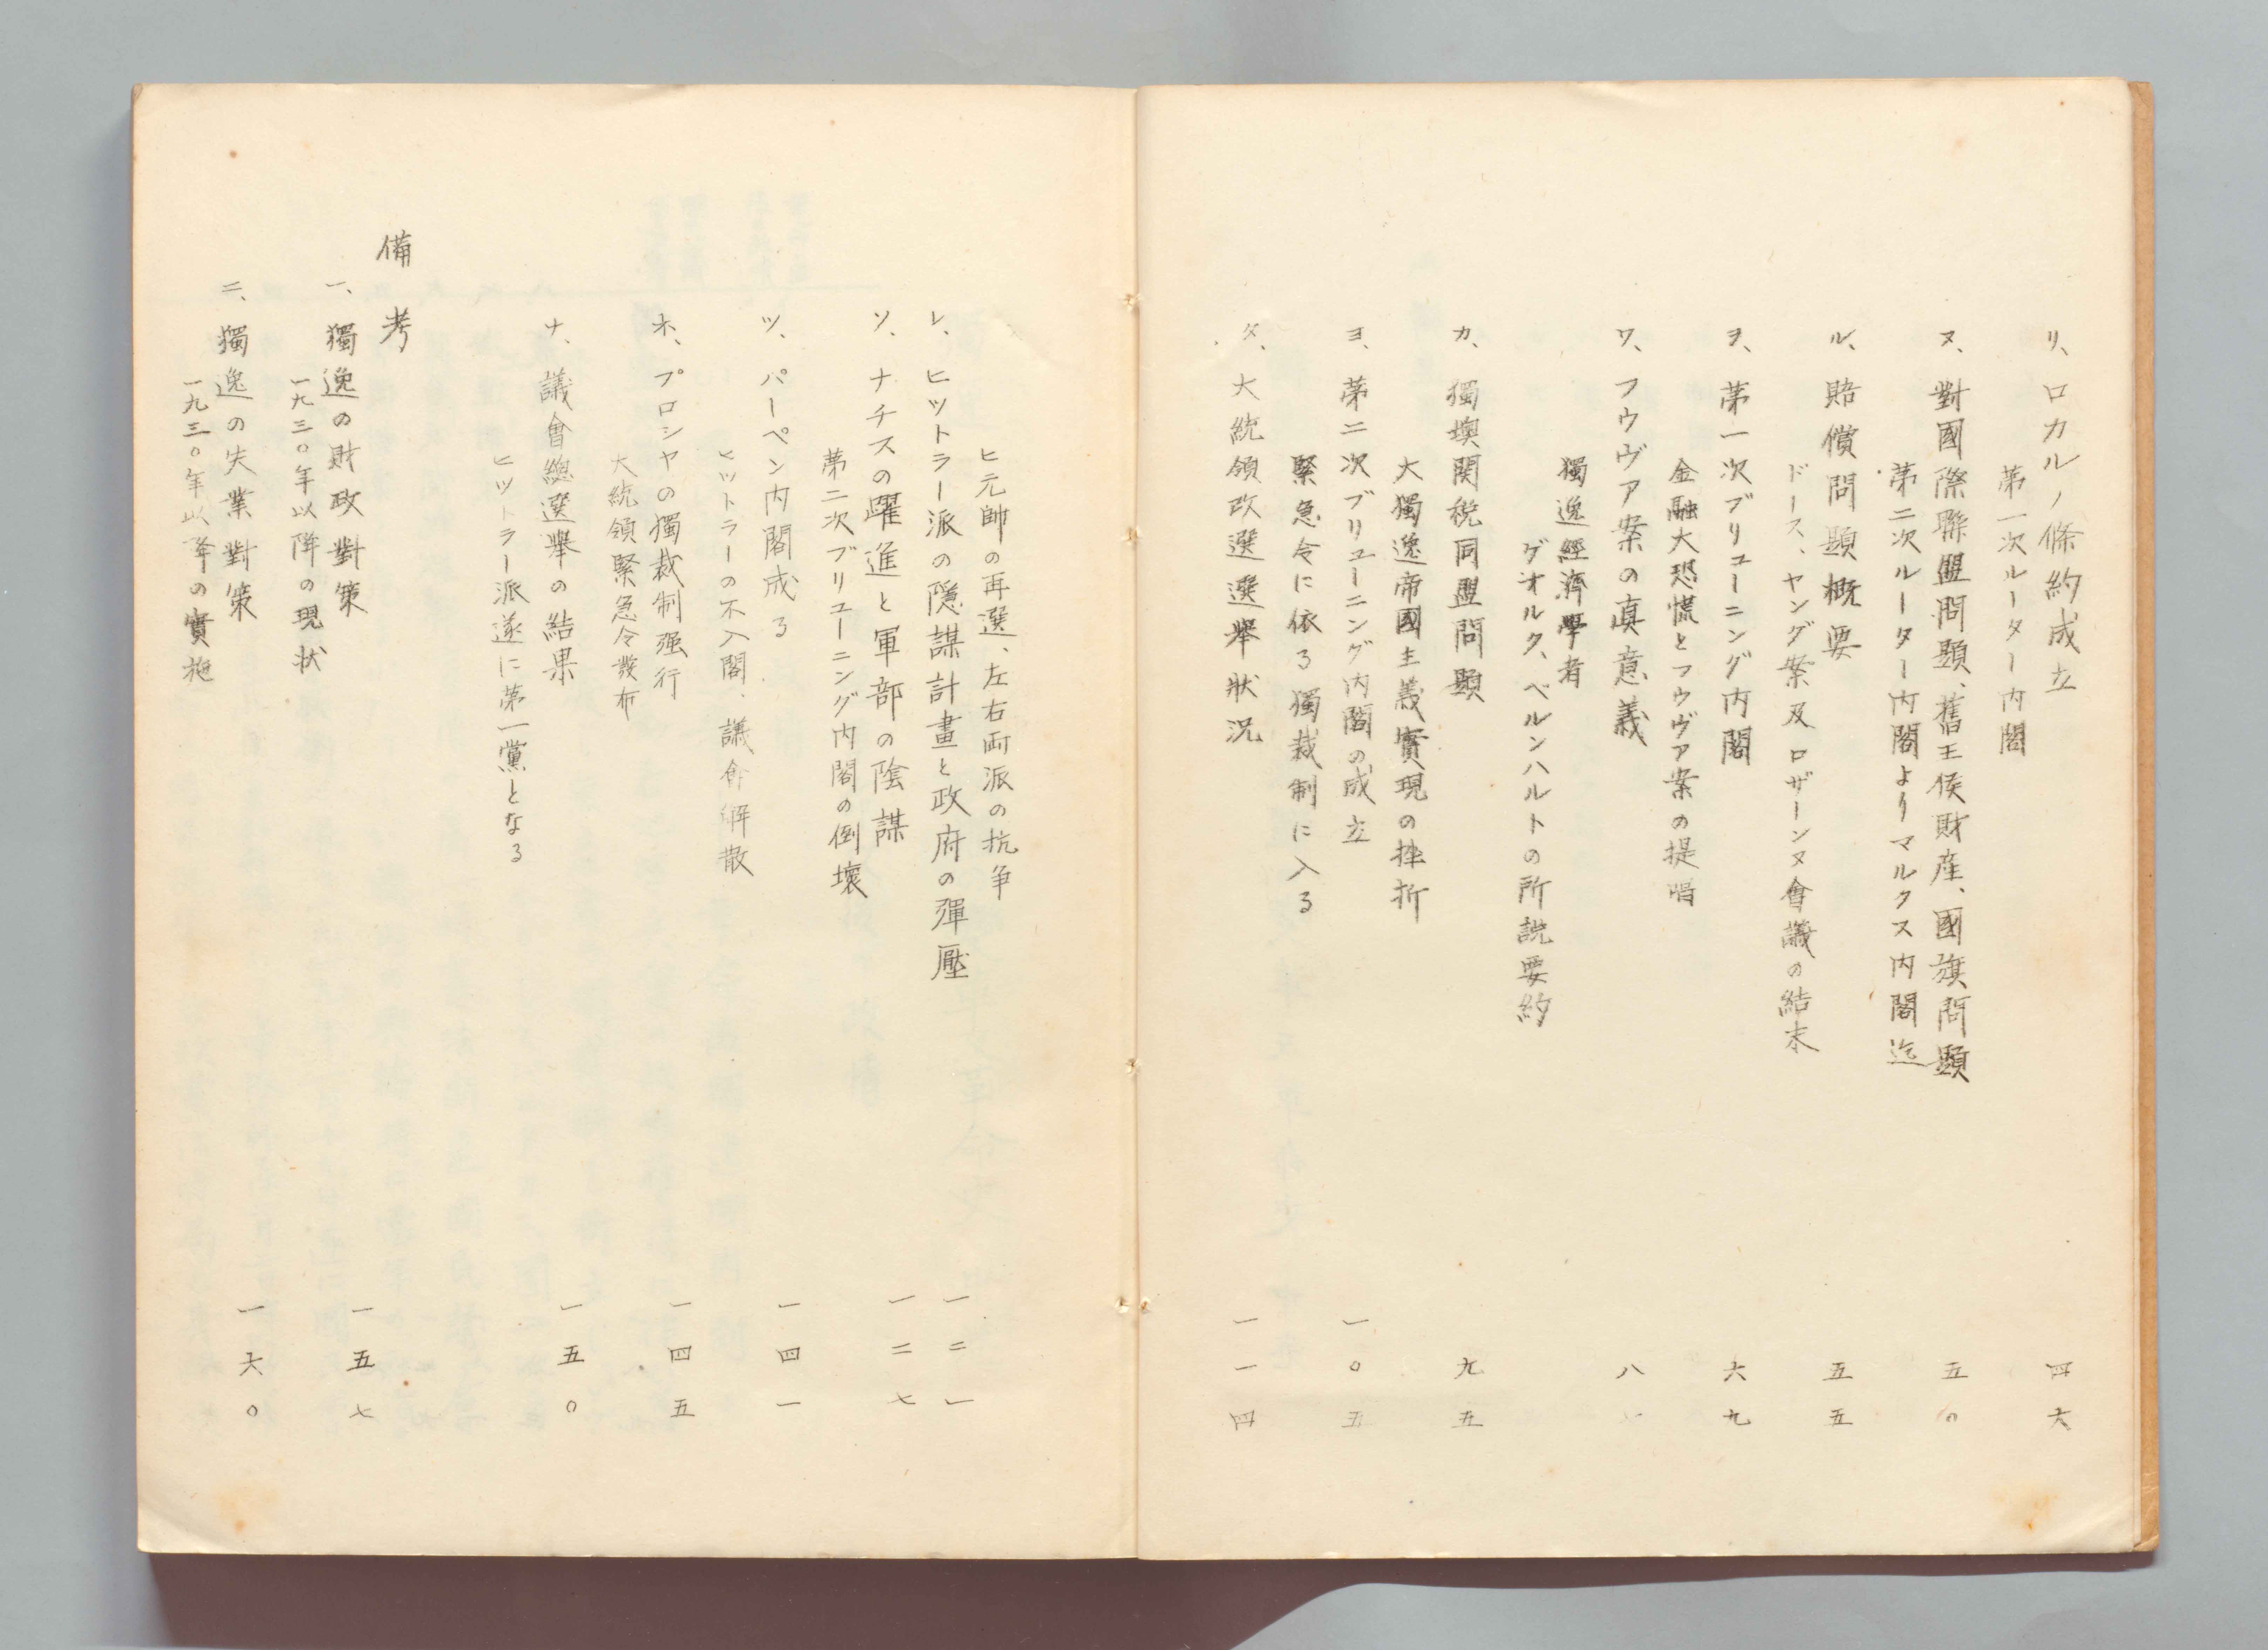 リ、ロカルノ條約成立 四六
第一次ルーター内閣
ヌ、對國際聯盟問題、舊王侯財産、國旗問題 五〇
第二次ルーター内閣よりマルクス内閣迄
ル、賠償問題概要 五五
ドース、ヤング案及ロザーンヌ會議の結末
ヲ、第一次ブリューニング内閣 六九
金融大恐慌とフウヴァ案の提唱
ワ、フウヴァ案の真意義 八
獨逸經濟學者
ゲオルク、ベルンハルトの所説要約
カ、獨墺関税同盟問題 九五
大獨逸帝國主義實現の挫折
ヨ、第二次ブリューニング内閣の成立 一〇五
緊急令に依る獨裁制に入る
タ、大統領改選選擧狀況 一一四
ヒ元帥の再選、左右両派の抗争
レ、ヒットラー派の隱謀計畫と政府の彈壓 一二一
ソ、ナチスの躍進と軍部の陰謀 一二七
第二次ブリューニング内閣の倒壞
ツ、パーペン内閣成る 一四一
ヒットラーの不入閣、議会解散
ネ、プロシヤの獨裁制强行 一四五
大統領緊急令發布
ナ、議會總選擧の結果 一五〇
ヒットラー派遂に第一黨となる
備考
一、獨逸の財政對策 一五七
一九三〇年以降の現状
二、獨逸の失業對策 一六〇
一九三〇年以降の實施